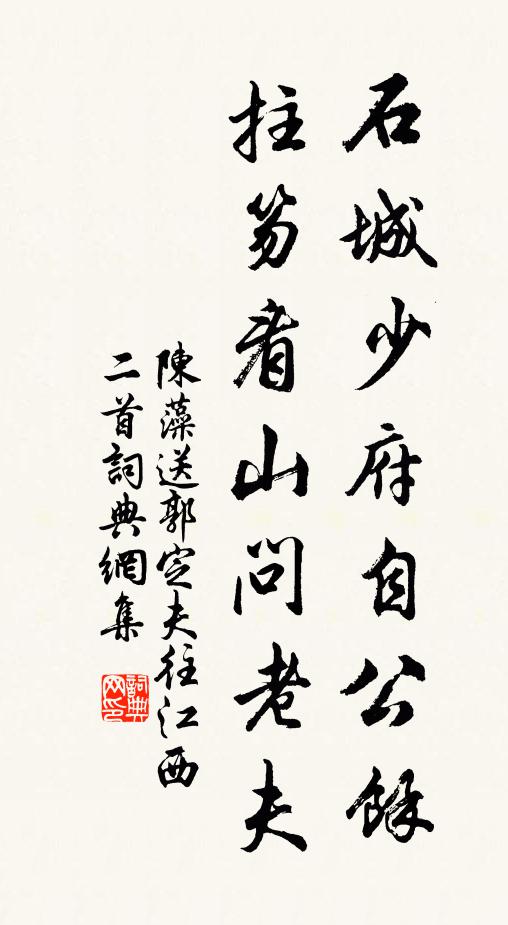 石城少府自公餘
拄笏看山問老夫
陳藻送郭定夫往江西
二首詞典網集
詞典
网印